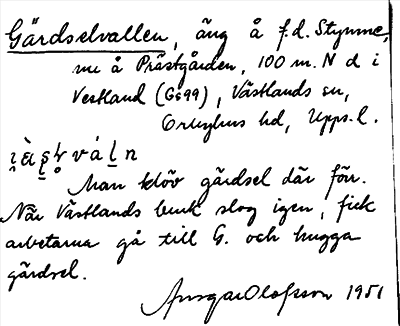 Gärdselvallen, äng å f.d. Stymne,
nu å Prästgården, 100 m. N d i
Vestland (Gs99), Västlands sn,
Örbyhus hd, Upps. l.
Man klöv gärdsel där förr.
När Västlands bruk slog igen, fick
arbetarna gå till G. och hugga
gärdsel.
Ansgar Olofsson 1951